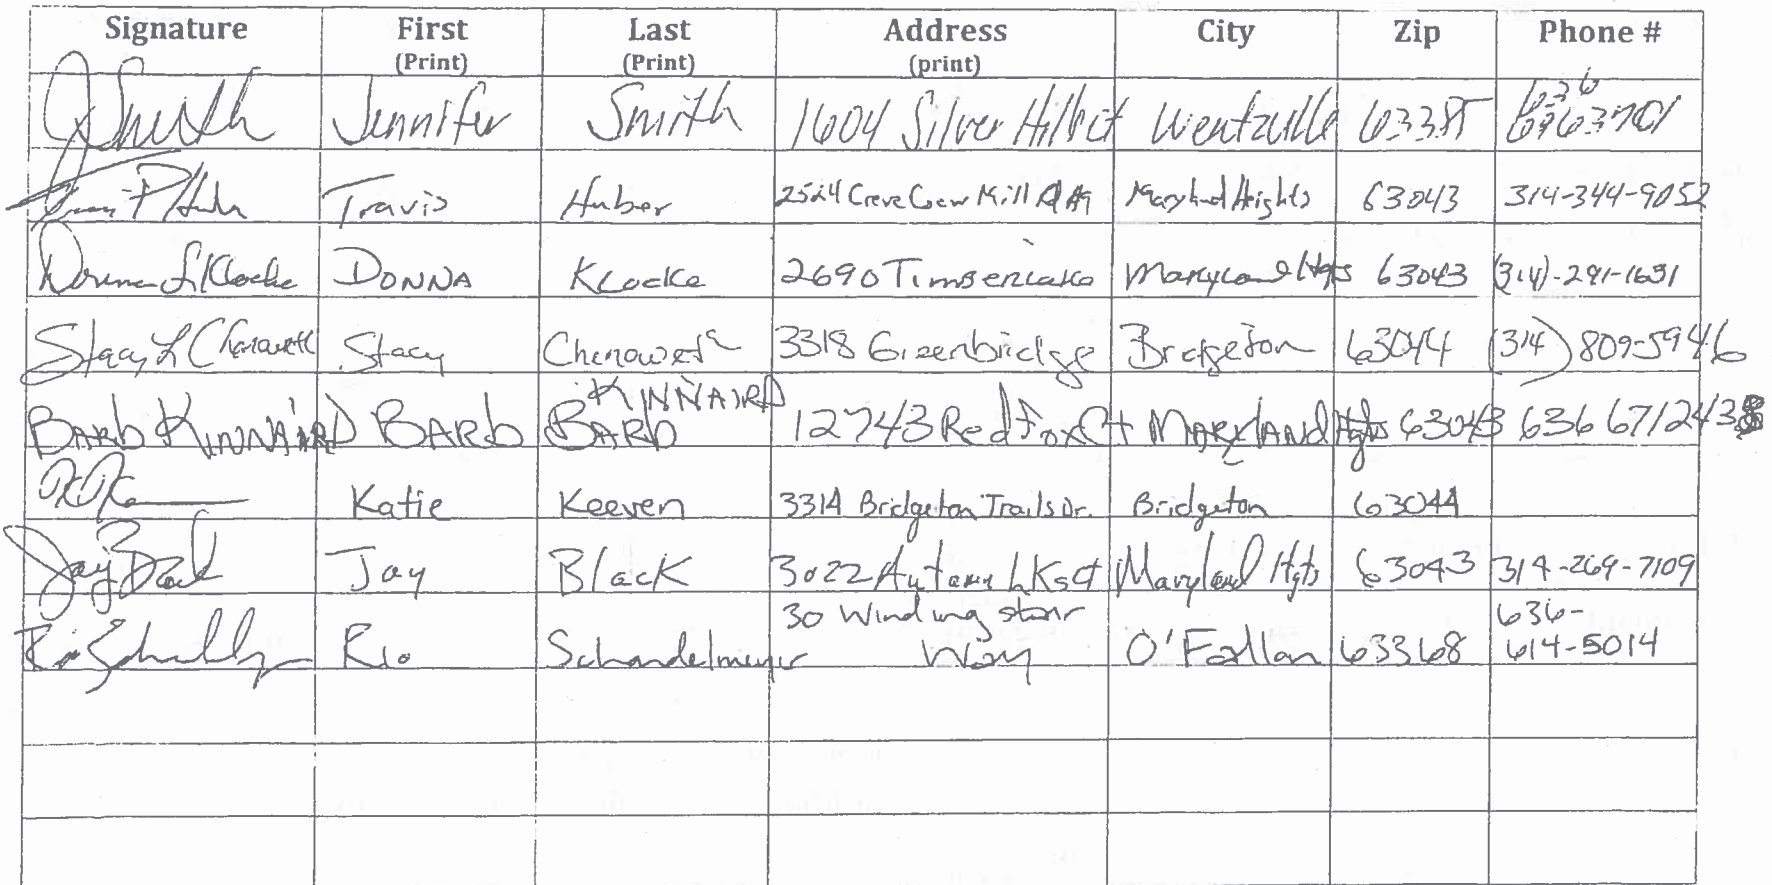 Signature First Last Address City Zip Phone #
(Print) (Print) (print)
JSmith Jennifer Smith 1604 Silver Hill Wentzville 63385 636
Travis Huber 2524 Creve Coeur Mill Maryland Heights 63043 314-344-9052
Donna L Klocke DONNA KLocke 2690 Timberlake Maryland Hgts 63043 (314)-291-1631
Stacy L Chenoweth Stacy Chenoweth 3318 Greenbridge Bridgeton 63044 (314) 809-5946
KINNAIRD
BARb KINNAIRD BARb BARb 12743 Red Fox Ct MARYLANd Hgts 63043 636 671243
Katie Keeven 3314 Bridgeton Trails Dr. Bridgeton 63044
Jay Black Jay Black 3022 Autumn LKs Ct Maryland Hgts 63043 314-269-7109
30 Winding stair 636-
Rio Schandelmeyer Way O'Fallon 63368 614-5014